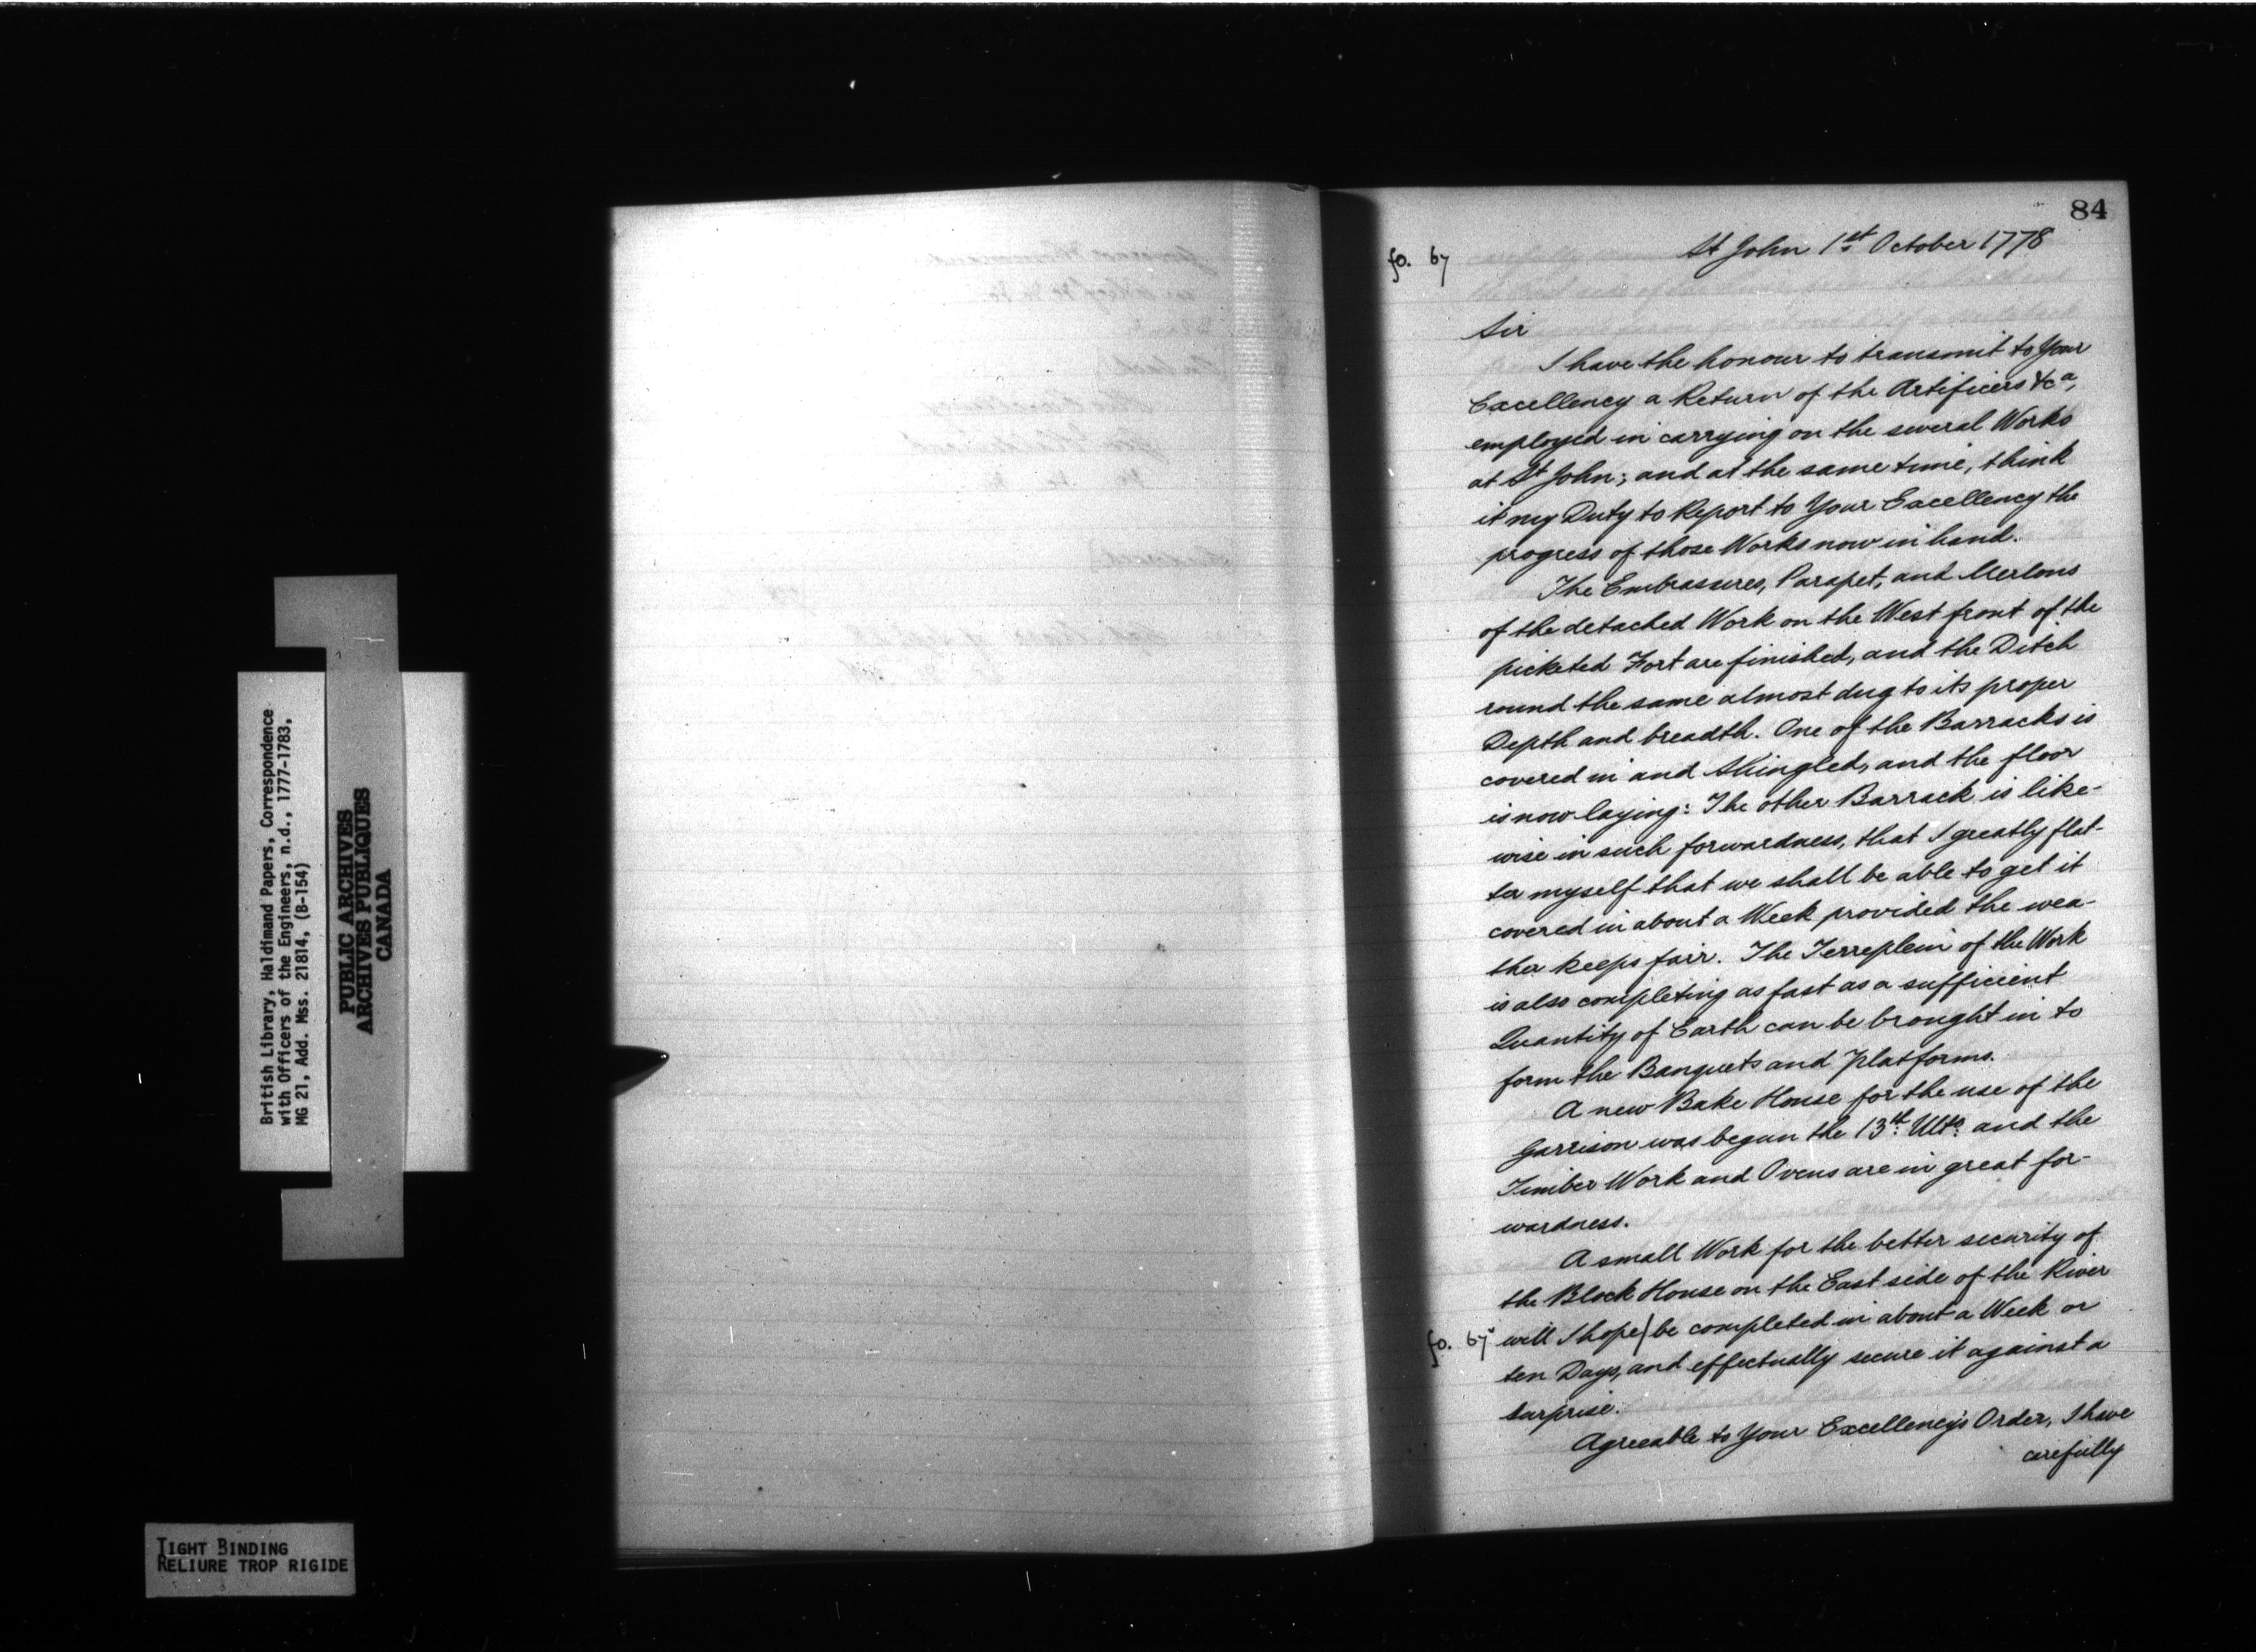 British Library, Haldimand Papers, Correspondence
with Officers of the Engineers, n.d., 1777-1783,
MG 21, Add. Mss. 21814, (B-154)
PUBLIC ARCHIVES
ARCHIVES PUBLIQUES
CANADA
TIGHT BINDING
RELIURE TROP RIGIDE
84
fo. 67
St John 1st October 1778
Sir
I have the honour to transmit to Your
Excellency a Return of the Artificers &ca,
employed in carrying on the several Works
at St John; and at the same time, think
it my Duty to Report to Your Excellency the
progress of those Works now in hand.
The Embrassures, Parapet, and Merlons
of the detached Work on the West front of the
picketed Fort are finished, and the Ditch
round the same almost dug to its proper
Depth and breadth. One of the Barracks is
covered in and Shingled, and the floor
is now laying: The other Barrack is like-
wise in such forwardness, that I greatly flat-
ter myself that we shall be able to get it
covered in about a Week provided the wea-
ther keeps fair. The Terreplein of the Work
is also completing as fast as a sufficient
Quantity of Earth can be brought in to
form the Banquets and Platforms.
A new Bake House for the use of the
Garrison was begun the 13th: Ulto: and the
Timber Work and Ovens are in great for-
wardness.
A small Work for the better security of
the Block House on the East side of the River
fo. 67v will I hope/be completed in about a Week or
ten Days, and effectually secure it against a
surprise.
Agreeable to Your Excellency's Order, I have
carefully